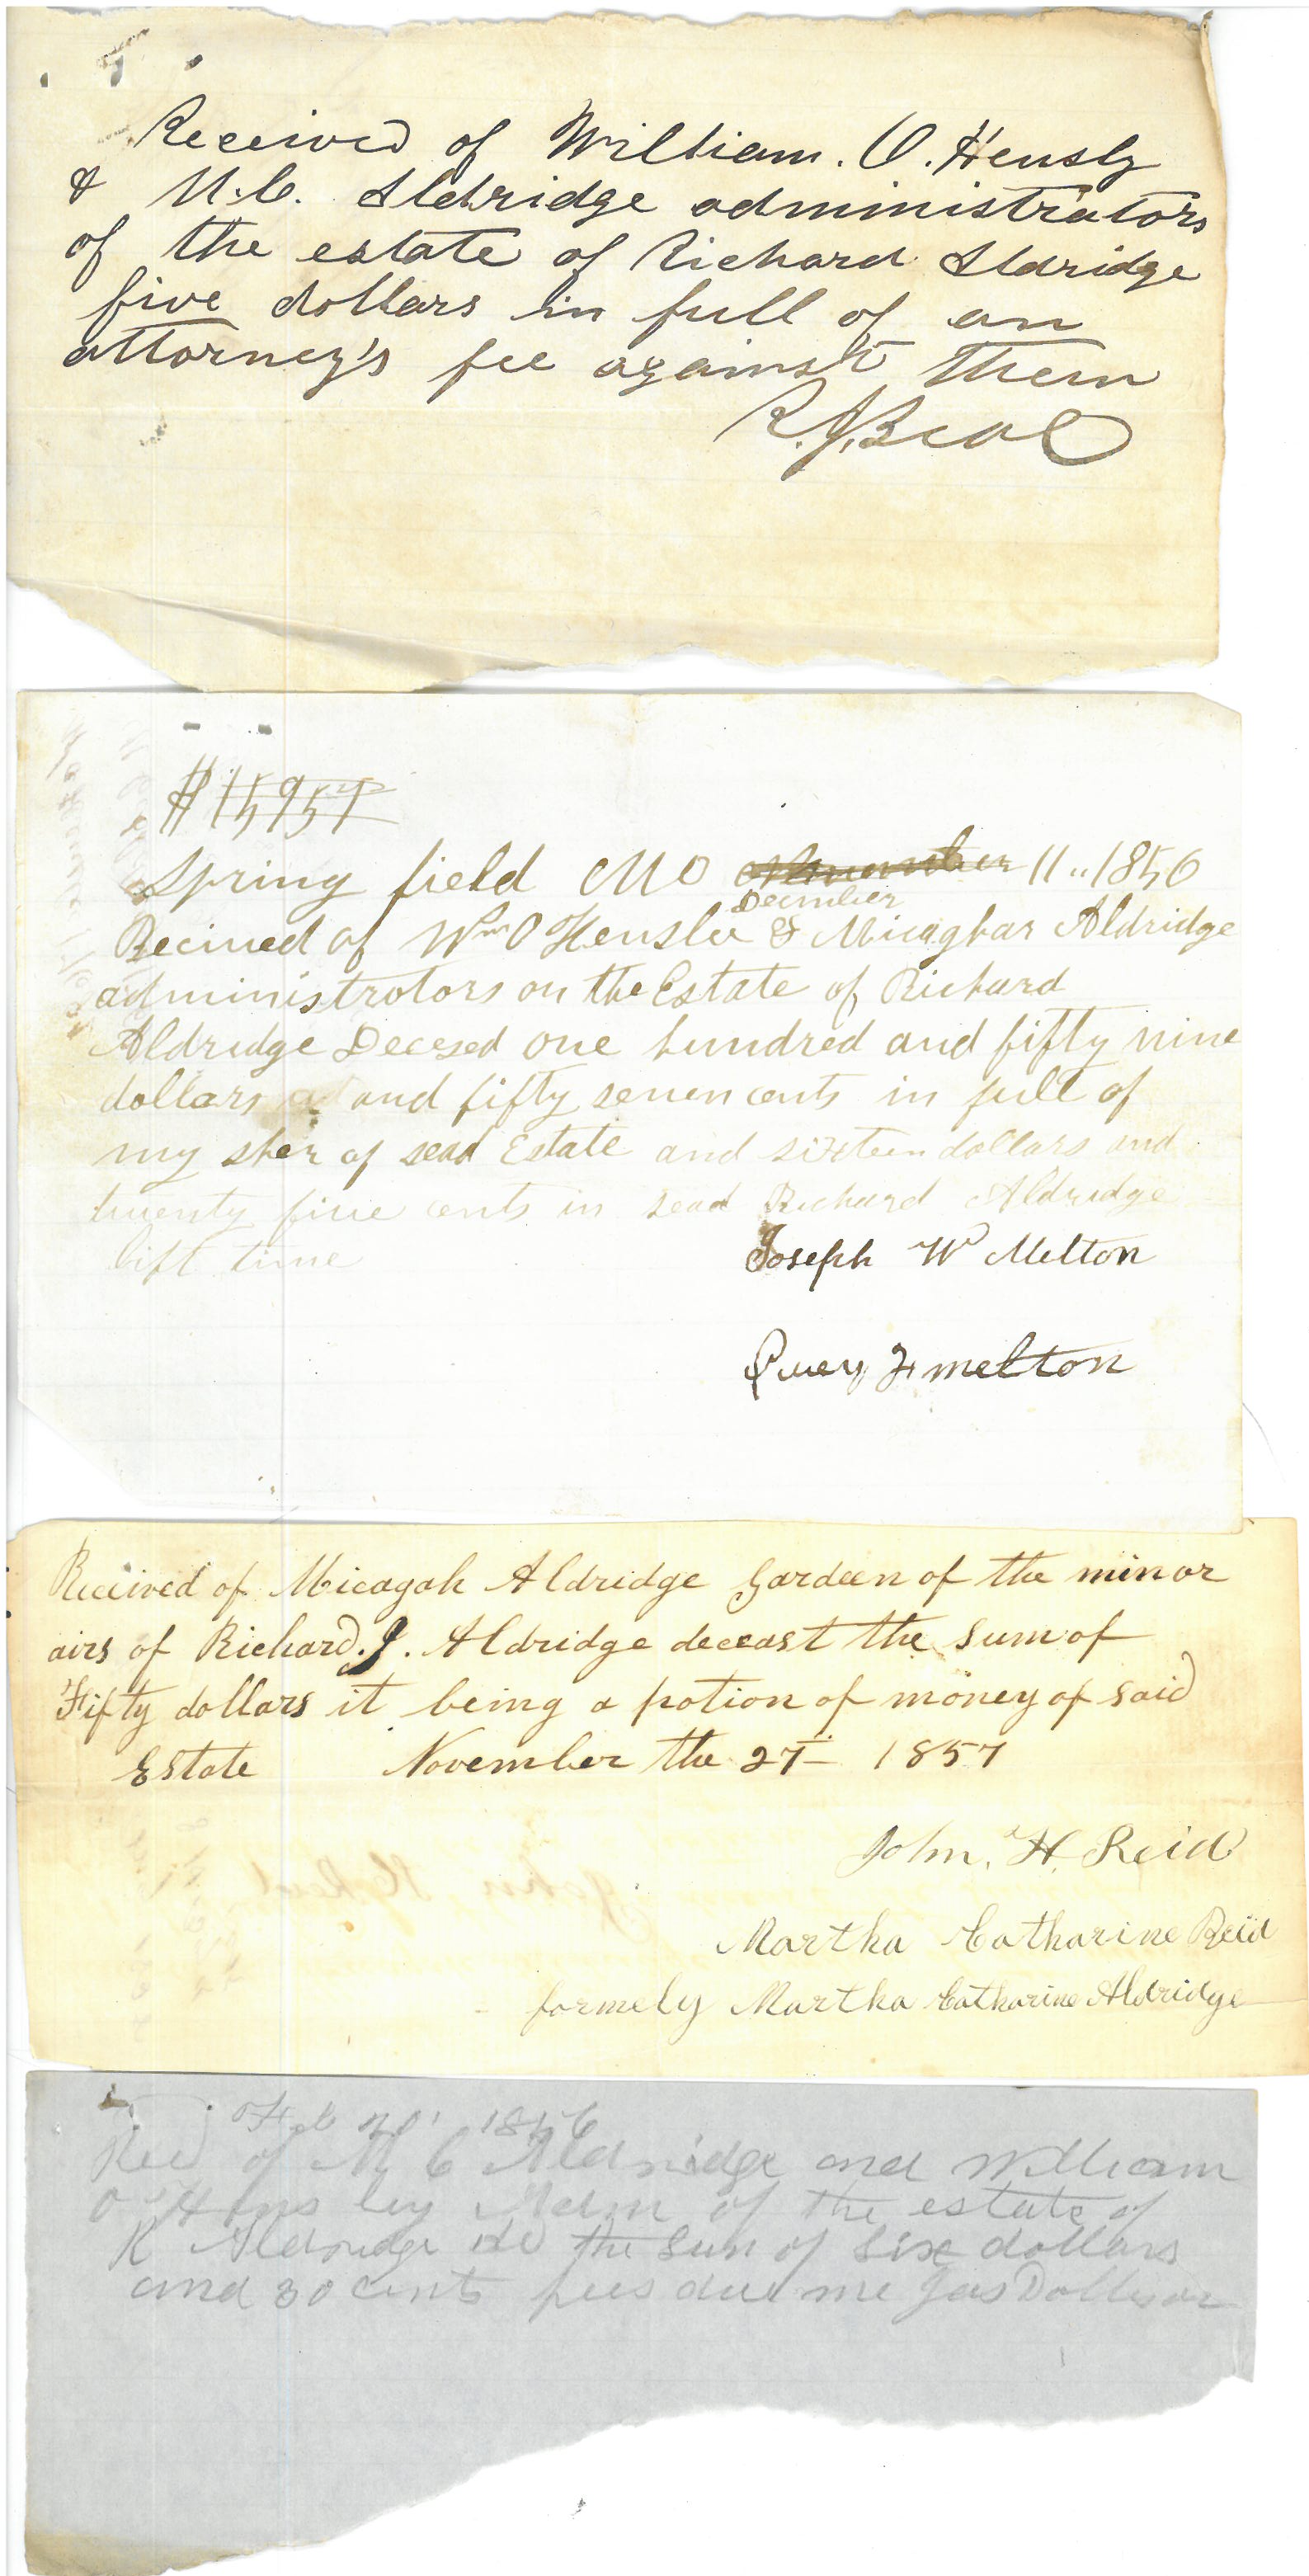 Received of William. O. Hensly
& M.C. Aldridge administrators
of the estate of Richard Aldridge
five dollars in full of an
attorney's fee against them
R.J. Beal
$159 57
Spring field MO November 11" 1856
December
Recived of Wm O Henslee & Micaghar Aldridge
administrotors on the Estate of Richard
Aldridge Decesed one hundred and fifty nine
dollars and fifty seven cents in full of
my sher of sead Estate and sixteen dollars and
twenty five cents in sead Richard Aldridge
lift time
Joseph W Melton
melton
Received of Micagah Aldridge gardeen of the minor
airs of Richard. J. Aldridge deceast the sum of
Fifty dollars it being a potion of money of said
Estate November the 27th 1857
John. H. Reid
Martha Catharine Reid
formely Martha Catharine Aldridge
Feb 1856
Recd of M C Aldridge and William
O Hensley Adm of the estate of
R Aldridge the sum of six dollars
and 30 cents fees due me Jas Dollison